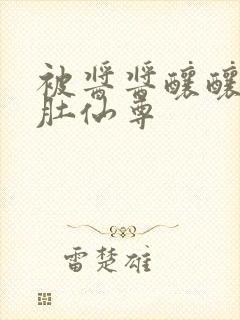 被酱酱酿酿
肚仙尊
雷楚雄